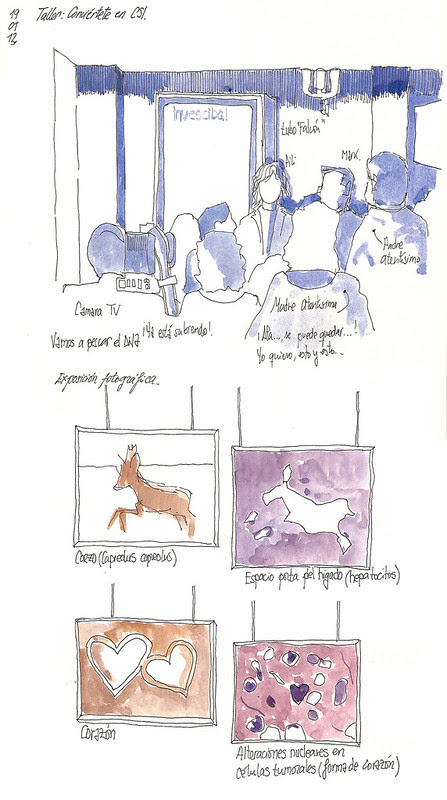 19
01
13
Taller: Conviértete en CSI.
Invesciba!
tubo "Falcon"
Ali
Mark
Padre
atentísimo
Cámara TV
Madre atentísima
¡Ya está subiendo!
Vamos a pescar el DNA
¡Ala... se puede guardar...!
Yo quiero, esto y esto...
Exposición fotográfica.
Corzo (Capreolus capreolus)
Espacio porta del hígado (hepatocitos)
Corazón
Alteraciones nucleares en
células tumorales (forma de corazón)